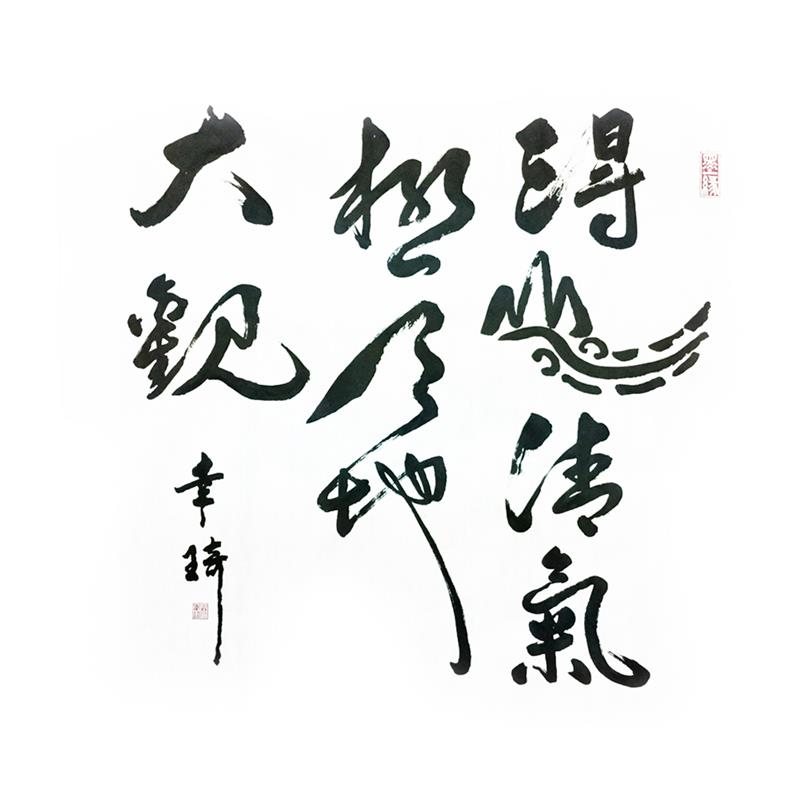 得山水清氣
極天地
大觀
幸琦